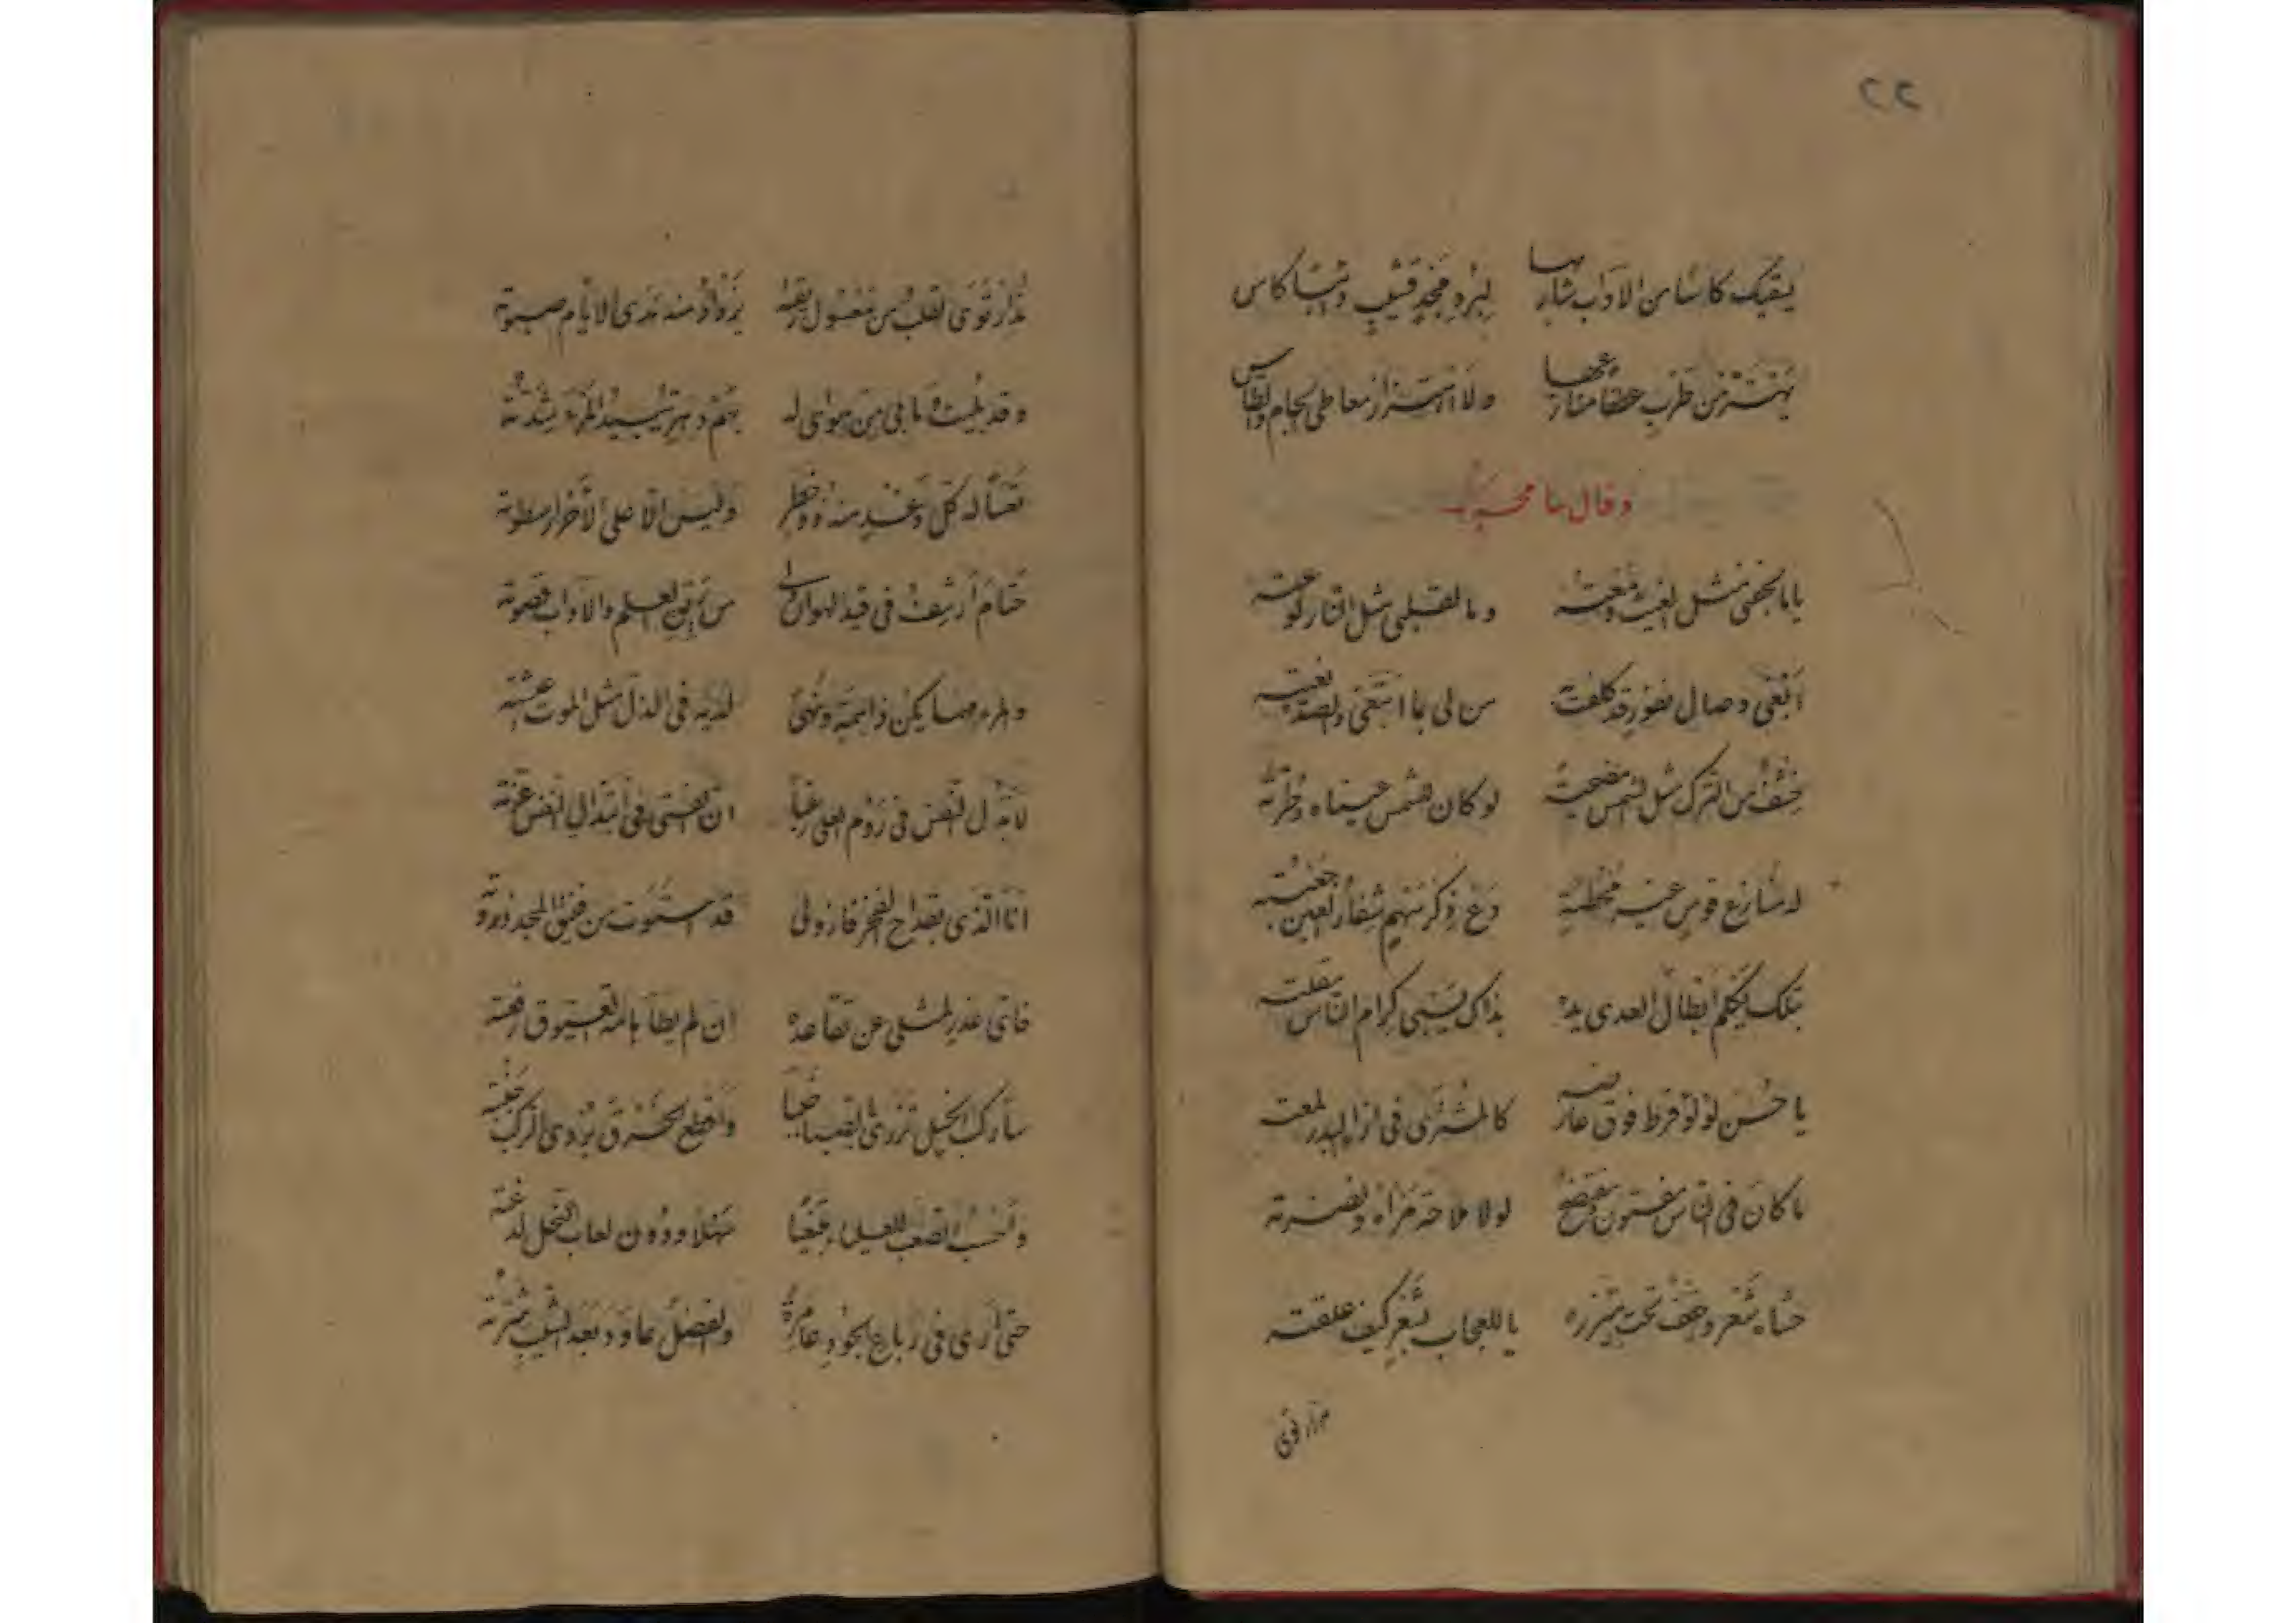 ٢٢
يسقيك كاسًا من الآداب شاربها لبرد مجد قشيب وشيًا كاس
يهتز من طرب عطفا منازعها ولا اهتزاز معاطي الجام والطاس
وقال سامحه
ياما لجفني مثل الغيث دمعته وما لقلبي مثل النار لوعته
ابغي وصال نفور قد كلفت به من لي بما ابتغي والصد بغيته
خشف من الترك مثل الشمس مضحية لو كان للشمس عيناه وطرته
له منازع قوس غير مخطئة دع ذكر سهم شفار العين جعبته
بتلك يكلم ابطال العدى يده بذاك يسبي كرام الناس مقلته
يا حسن لؤلؤ قرط فوق عارضه كالمشتري في ازاء البدر لمعته
ما كان في الناس مفتون ومفتضح لولا ملاحة مرآه ونضرته
حشاء شعر وحقف تحت ميزره يا للعجاب بشعر كيف علقته
مزار قوى
مزار قوى القلب من معسول ريقته يزداد منه ندى الايام صبوته
وقد بليت وما بي من هواي له بهم دهر يبيد المرء شدته
تعسًا له كل وغد منه ذو خطر وليس الا على الاحرار سطوته
حتام أرسف في قيد الهوان ولي من بين العلم والآداب قصوته
والمرء مهما يكن ذا همة ونهى لديه في الذل مثل الموت عيشته
لابذل النفس في روم العلى رغبًا ان الفتى في ابتذال النفس عزته
انا الذي بقداح الفخر فاز ولي قد استوت من فنيق المجد ذروته
فاي عذر لمثلي عن تقاعده ان لم يطأ هامة العيوق رفعته
سأركب الخيل تزري بالصبا خببا واقطع الخرق يردي الركب خيفته
واحسب الصعب للعلياء مبتغيًا سهلا ودون لعاب النحل لدغته
حتى ارى في رباع الجود عامرة والفضل عاود بعد الشيب شرته